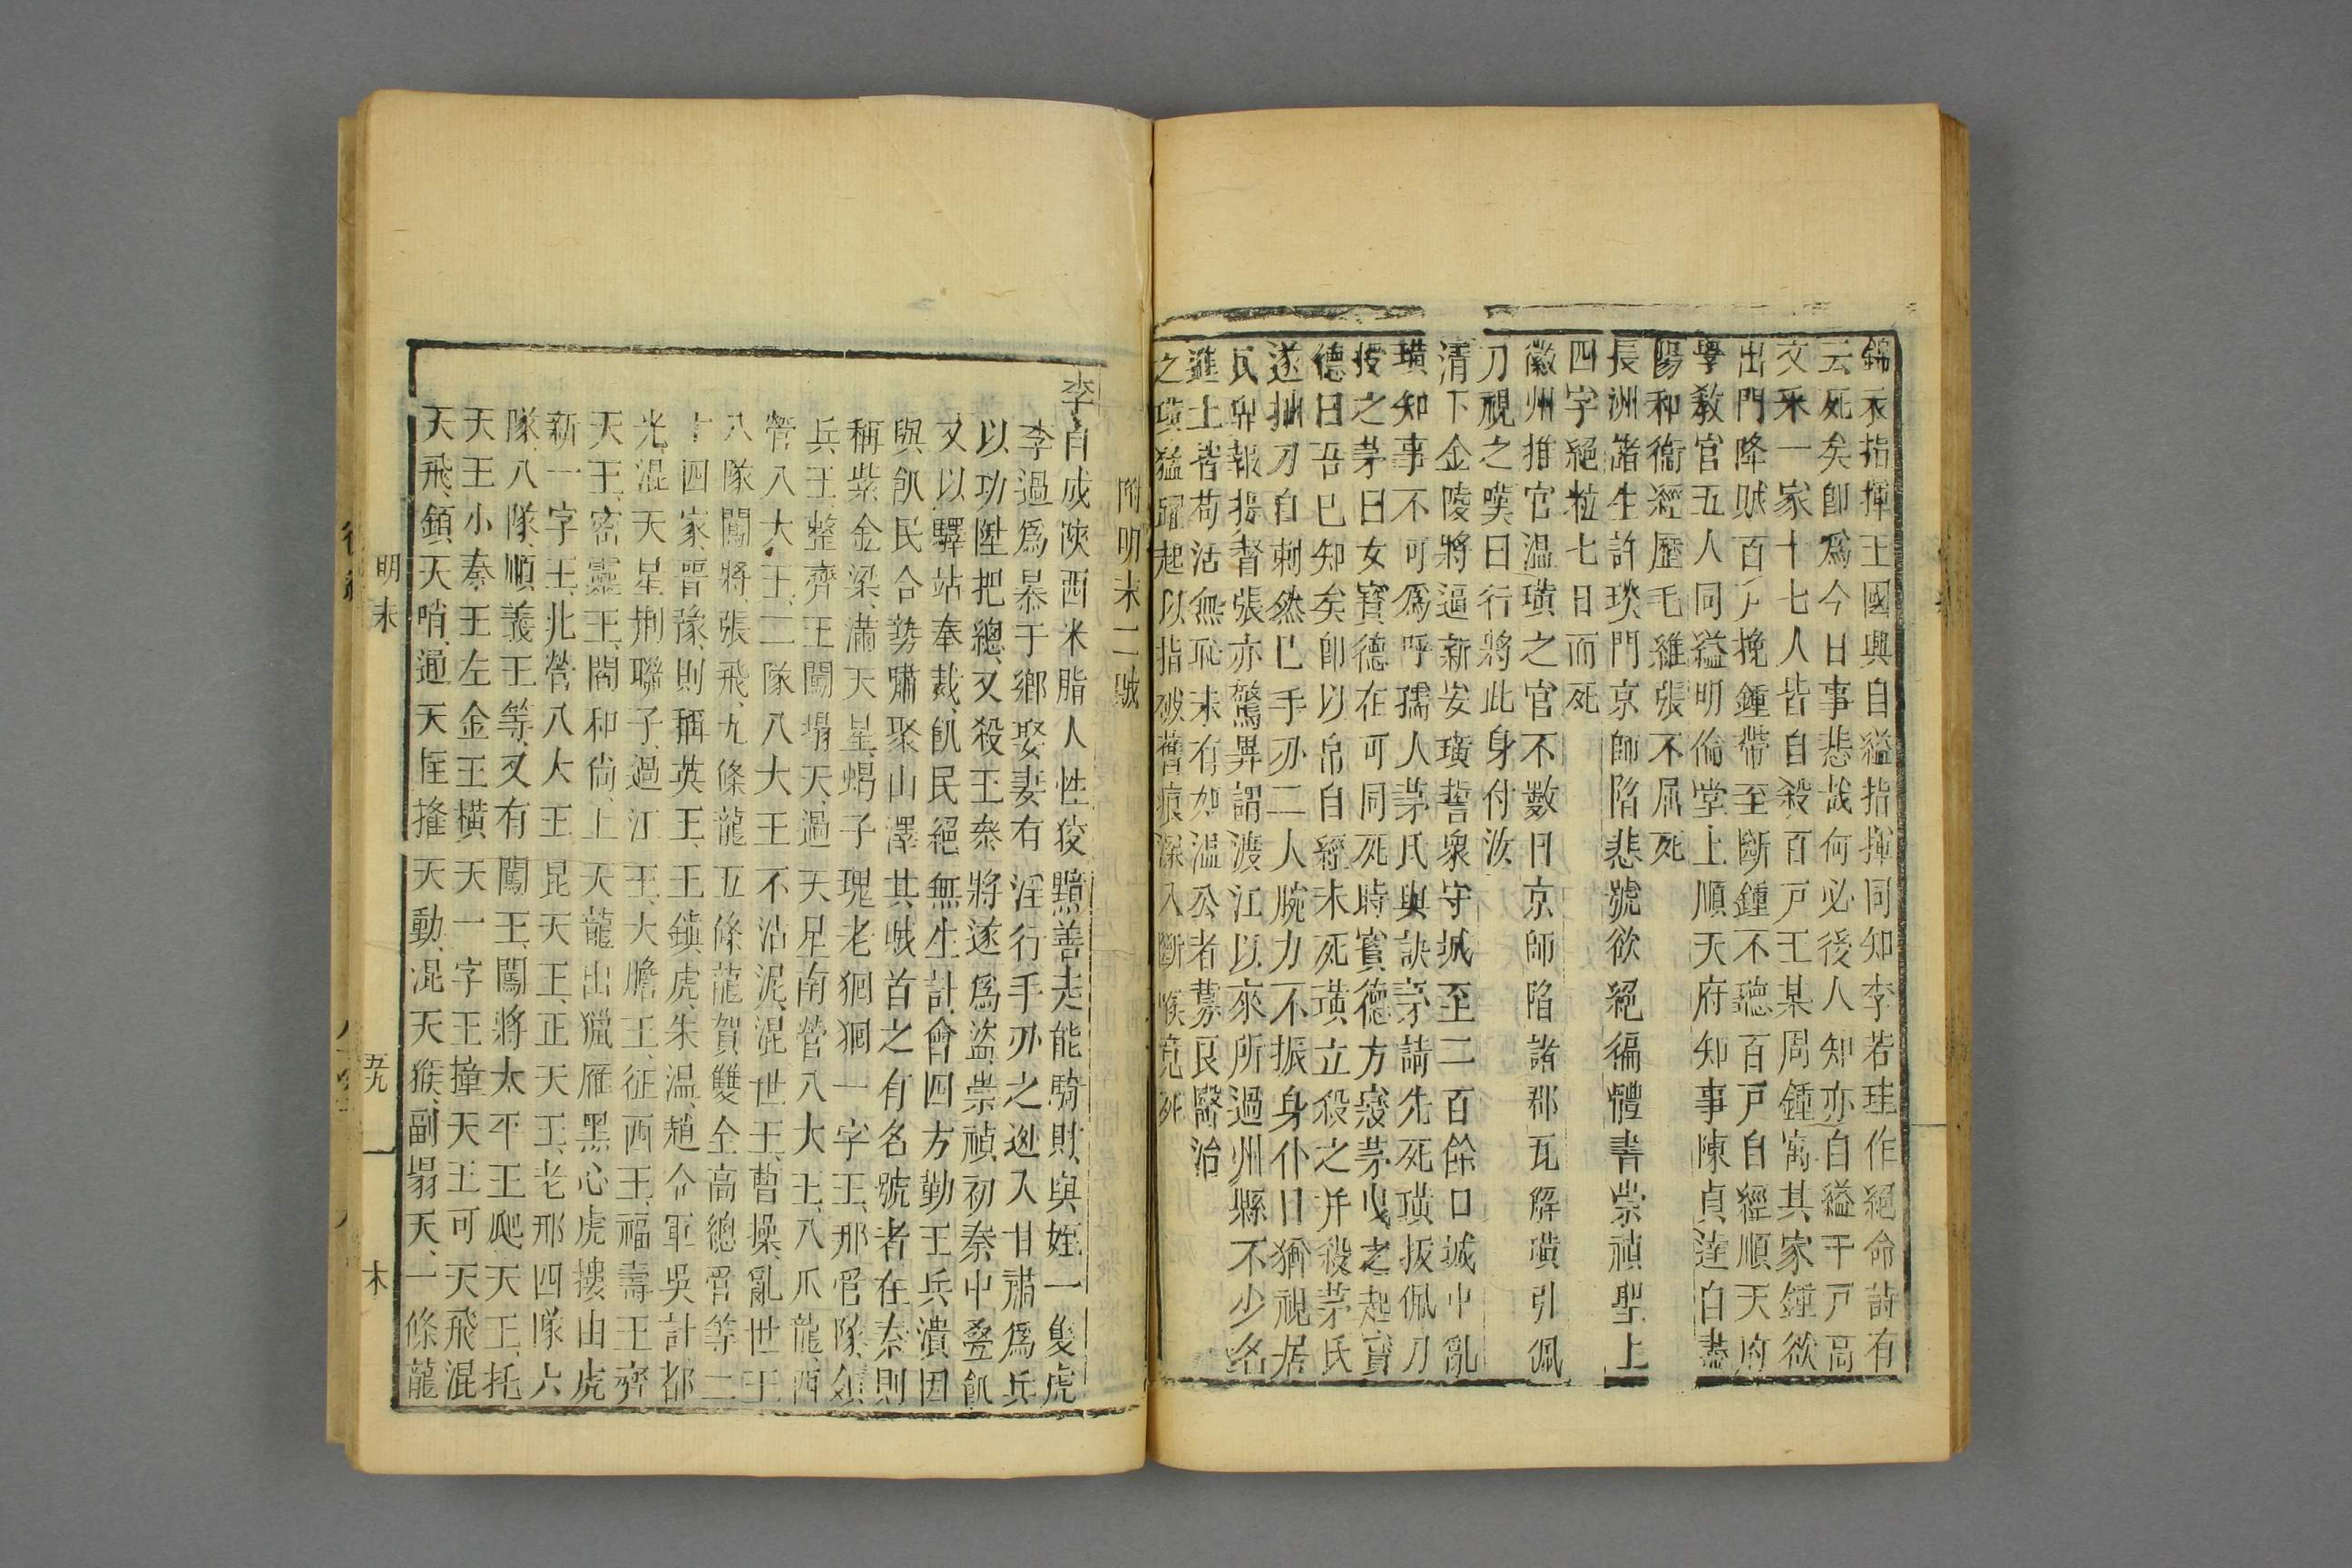 錦衣指揮王國興自縊指揮同知李若珪作絕命詩有
云死矣卽爲今日事悲哉何必後人知亦自縊千戸高
文采一家十七人皆自殺百戸王某周鍾寓其家鍾欲
出門降賊百戸挽鍾帶至斷鍾不聽百戸自經順天府
學教官五人同縊明倫堂上順天府知事陳貞達自盡
陽和衞經歷毛維張不屈死
長洲諸生許琰門京師陷悲號欲絕徧體書崇禎聖上
四字絕粒七日而死
徽州推官温璜之官不數月京師陷諸郡瓦解璜引佩
刀視之嘆曰行將此身付汝
清下金陵將逼新安璜誓衆守城至二百餘口城中亂
璜知事不可爲呼孺人茅氏與訣茅請先死璜扳佩刀
授之茅曰女寳德在可同死時寳德方寢茅曳之起寳
德曰吾巳知矣卽以帛自經未死璜立殺之并殺茅氏
遂抽刀自刺然巳手刃二人腕力不振身仆日猶視居
民舁報提督張亦驚異謂渡江以來所過州縣不少名
進士皆苟活無恥未有如温公者募良醫治
之璜猛躍起以指破舊痕深入斷喉竟死
附明末二賊
李自成陝西米脂人性狡黠善走能騎財與姪一隻虎
李過爲暴于鄉娶妻有淫行手刃之迯入甘肅爲兵
以功陞把總又殺王泰將遂爲盜崇禎初秦中叠飢
又以驛站奉裁飢民絕無生計會四方勤王兵潰因
與飢民合勢嘯聚山澤其賊首之有名號者在秦則
稱紫金梁滿天星蝎子塊老狪狪一字王那官隊領
兵王整齊王闖塌天過天星南營八大王八爪龍西
營八大王二隊八大王不沾泥混世王曹操亂世王
八隊闖將張飛九條龍五條龍賀雙全高總管等二
十四家晋豫則稱英王王鎮虎朱温趙令軍吳計都
光混天星荆聯子過江王大膽王征西王福壽王齊
天王密靈王閻和尚上天龍出獵雁黑心虎摟山虎
新一字王北營八大王昆天王正天王老那四隊六
隊八隊順義王等又有闖王闖將太平王爬天王托
天王小秦王左金王橫天一字王撞天王可天飛混
天飛鎮天哨通天侄摧天動混天猴副塌天一條龍
明末
五九